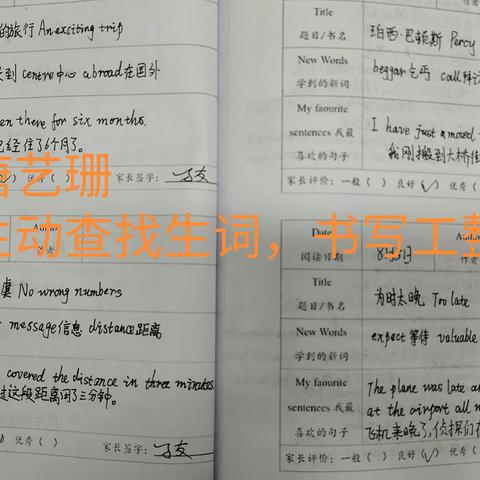 的旅行 An exciting trip
到 centre中心 abroad在国外
en there for six months.
已经住了6个月了。
家长签字:
艺珊
主动查找生词,书写工整
Author
作者
No wrong numbers
message信息 distance距离
covered the distance in three minutes
过这段距离用了三分钟。
优秀( ) 家长签字:
Title
题目/书名
珀西·巴顿斯 Percy
New Words
学到的新词
beggar乞丐 call
My faourite
sentences 我最
喜欢的句子
I have just moved
我刚搬到大桥
家长评价:一般( ) 良好(√) 优秀(
Date
阅读日期
8月5日
Title
题目/书名
为时太晚 Too late
New Words
学到的新词
expect等待 valuable
My faourite
sentences 我最
喜欢的句子
The plane was late an
at the airport all m
飞机来晚了,侦探们
家长评价:一般( ) 良好(√) 优秀(